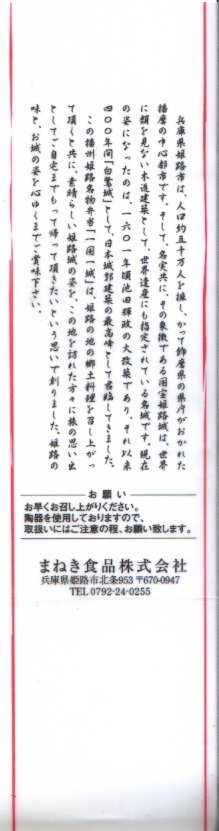 兵庫県姫路市は、人口約五十万人を擁し、かつて飾磨県の県庁がおかれた
播磨の中心都市です。そして、名実共に、その象徴である国宝姫路城は、世界
に類を見ない木造建築として、世界遺産にも指定されている名城です。現在
の姿になったのは、一六〇一年頃池田輝政の大改築であり、それ以来
四〇〇年間「白鷺城」として、日本城郭建築の最高峰として君臨してきました。
この播州姫路名物弁当「一国一城」は、姫路の地の郷土料理を召し上がっ
て頂くと共に、素晴らしい姫路城の姿を、この地を訪れた方々に旅の思い出
としてご自宅までもって帰って頂きたいという思いで創りました。姫路の
味と、お城の姿を心ゆくまでご賞味下さい。
お願い
お早くお召し上がりください。
陶器を使用しておりますので、
取扱いにはご注意の程、お願い致します。
まねき食品株式会社
兵庫県姫路市北条953 〒670-0947
TEL 0792-24-0255